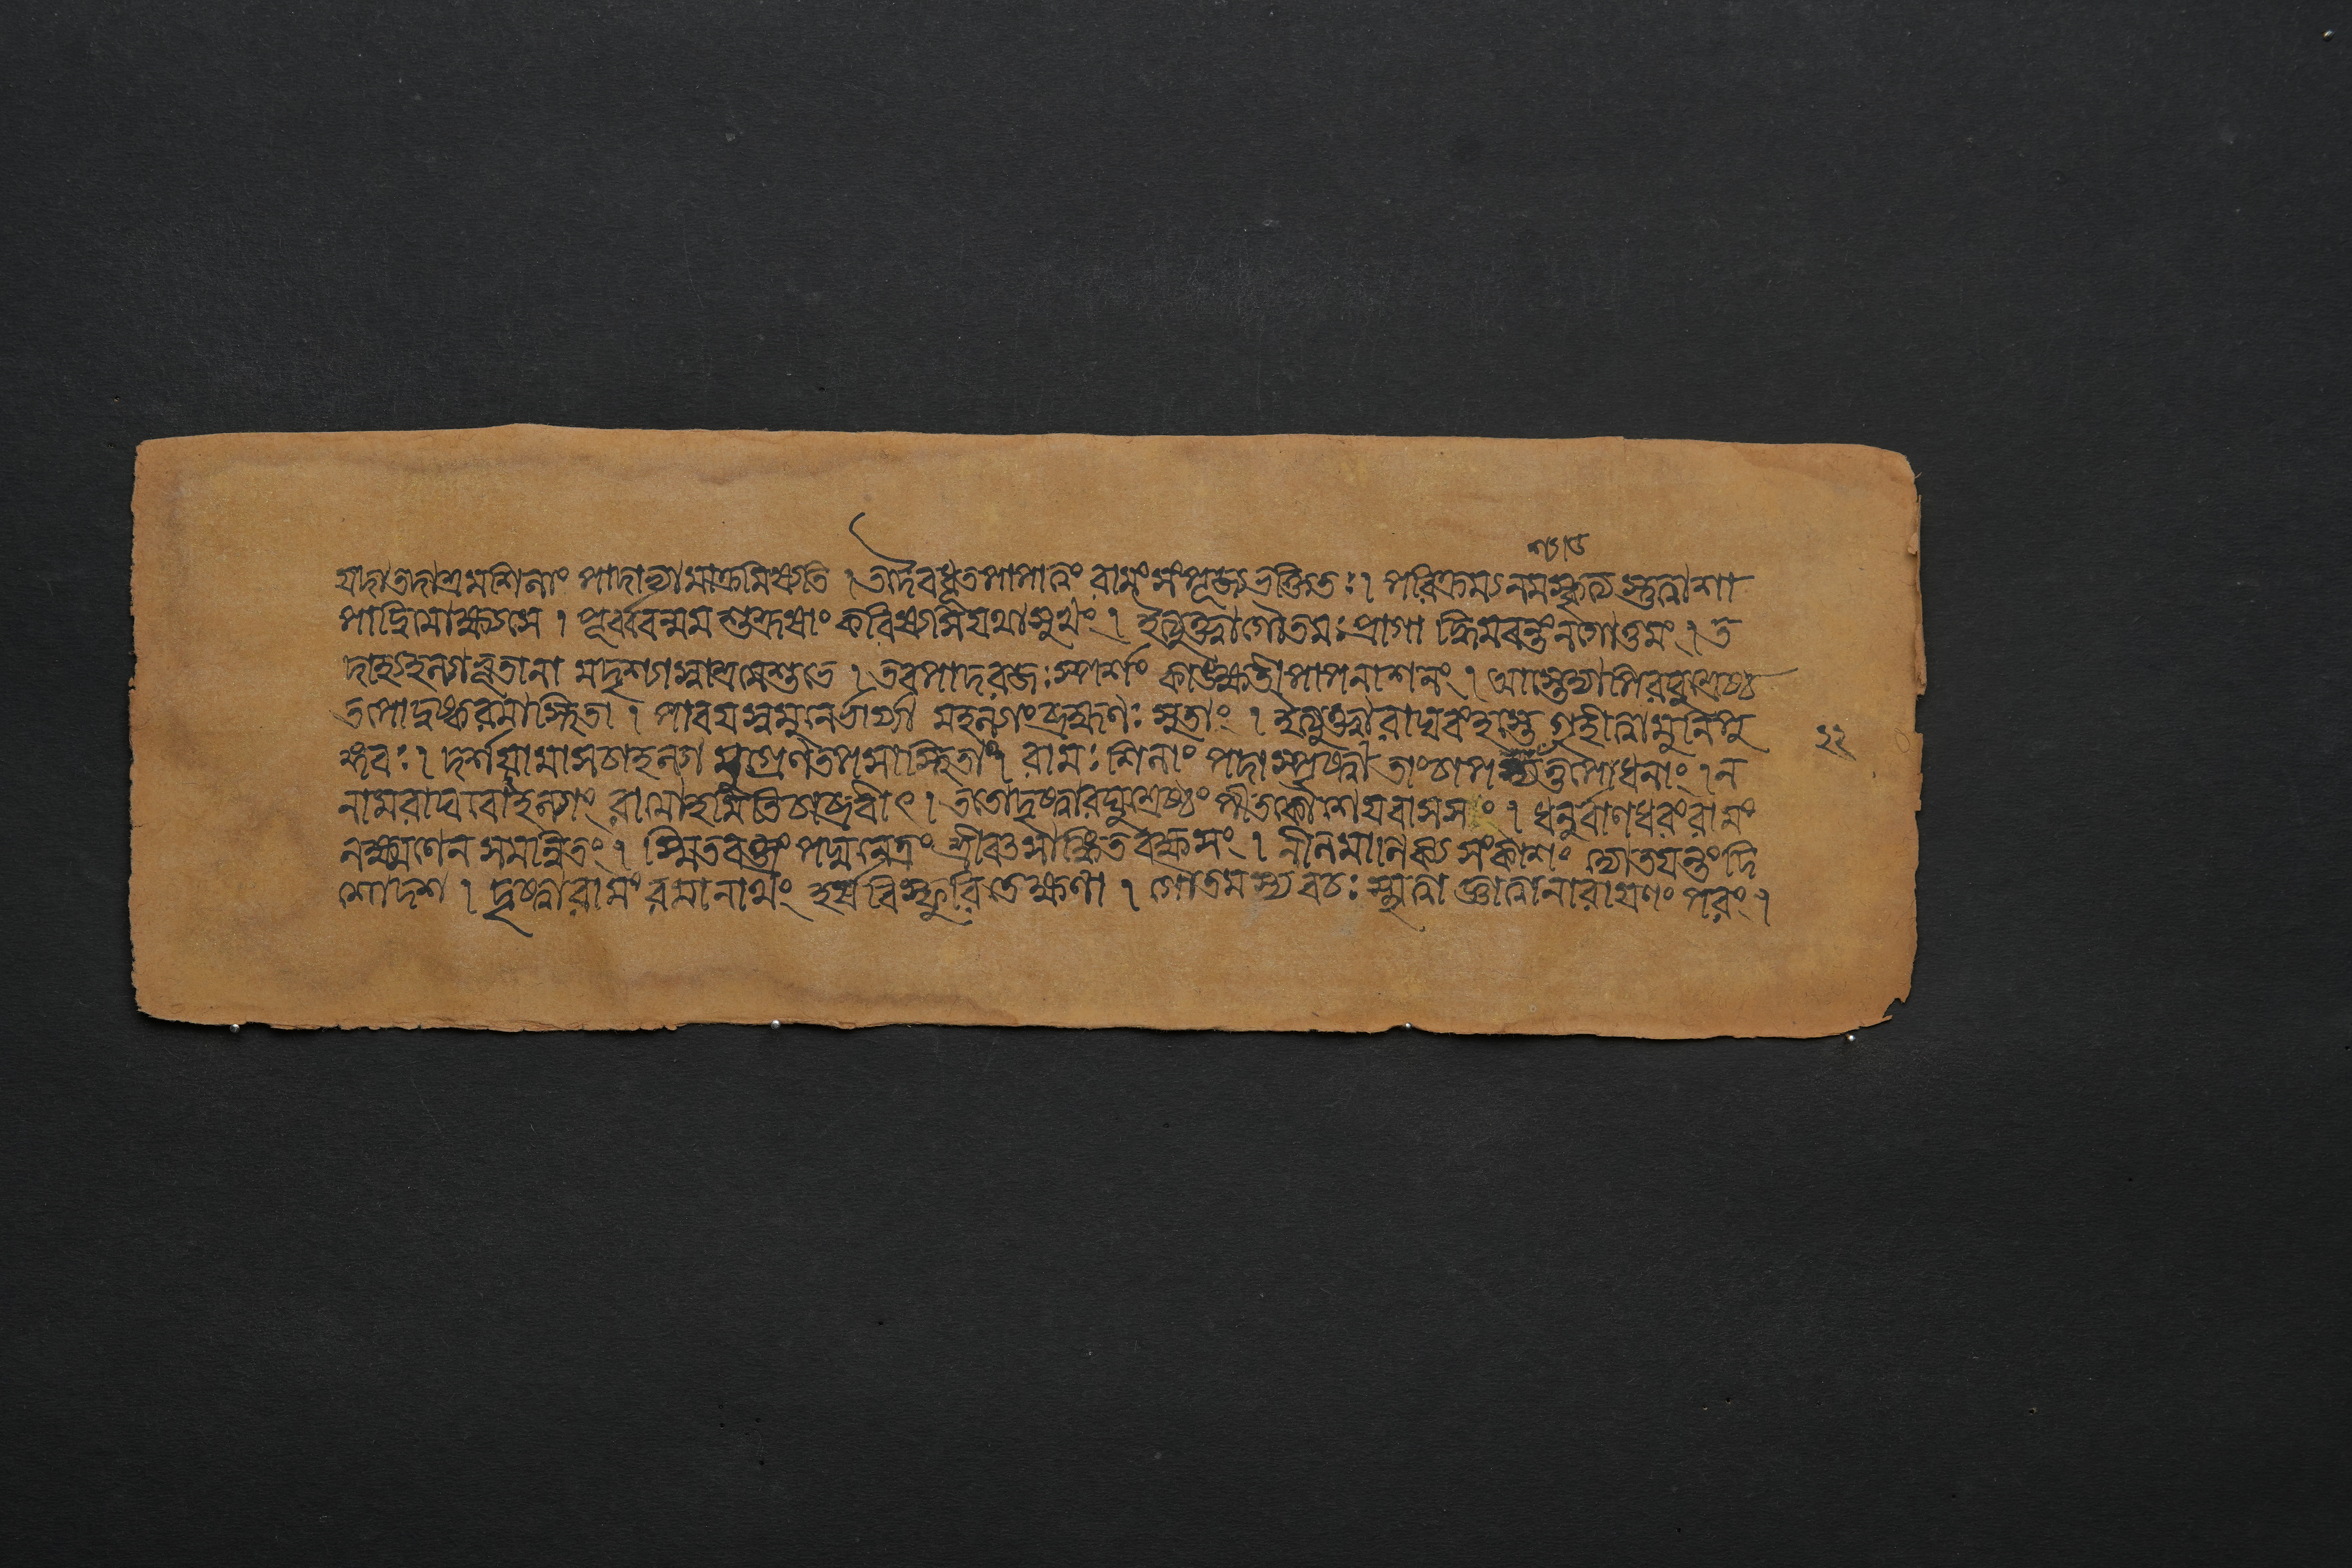 যদাত্বদাশ্রমশিলাং পাদাভ্যামাক্রমিষ্যতি । তদৈবধূতপাপাত্বং রামংসংপূজ্যভক্তিতঃ । পরিক্রম্যনমস্কৃত্যস্তুত্বাশা
পাদ্বিমোক্ষ্যসে । পূর্ব্ববন্মমশুশ্রূষাং করিষ্যসিযথাসুখং । ইত্যুক্ত্বাগৌতমঃপ্রাগাদ্ধিমবন্তংনগোত্তমং । ত
দাহ্যহল্যাভূতানামদৃশ্যাস্বাশ্রমেশুভে । তবপাদরজঃস্পর্শং কাঙ্ক্ষতেপাপনাশনং । আস্তেদ্যাপিরঘুশ্রেষ্ঠ
তপোদুষ্করমাস্থিতা । পাবয়স্বমুনের্ভার্যামহল্যাংব্রহ্মণঃসুতাং । ইত্যুক্ত্বারাঘবংহস্তেগৃহীত্বামুনিপু
ঙ্গবঃ । দর্শয়ামাসচাহল্যামুগ্রেণতপসাস্থিতাং । রামঃশিলাংপদাস্পৃষ্ট্বাতাংচাপশ্যত্তপোধনাং । ন
নামরাঘবোহল্যাং রামোহমিতিচাব্রবীৎ । ততোদৃষ্ট্বারঘুশ্রেষ্ঠং পীতকৌশেয়বাসসং । ধনুর্বাণধরংরামং
লক্ষ্মণেনসমন্বিতং । স্মিতবক্ত্রংপদ্মনেত্রং শ্রীবৎসাঙ্কিতবক্ষসং । নীলমাণিক্যসংকাশং দ্যোতয়ন্তংদি
শোদশ । দৃষ্ট্বারামংরমানাথং হর্ষবিস্ফুরিতেক্ষণা । গৌতমস্যবচঃস্মৃত্বাজ্ঞাত্বানারায়ণংপরং ।
২২